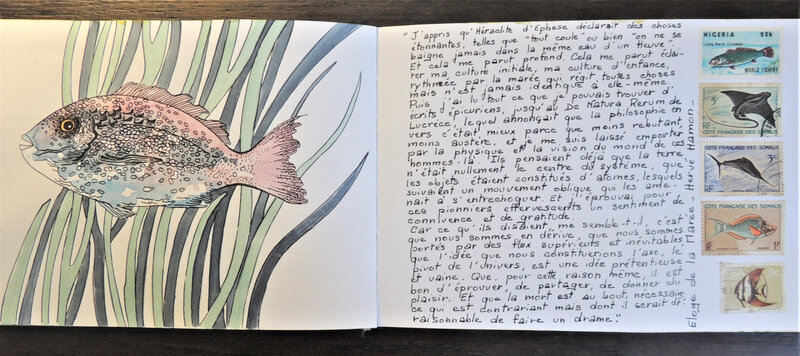 "J'appris qu'Héraclite d'Ephese déclarait des choses
étonnantes, telles que "tout coule" ou bien "on ne se
baigne jamais dans la même eau d'un fleuve".
Et cela me parut profond. Cela me parut éclai-
rer ma culture initiale, ma culture d'enfance,
rythmée par la marée qui régit toutes choses
mais n'est jamais identique à elle-même.
Puis j'ai lu tout ce que je pouvais trouver d'
écrits épicuriens, jusqu'au De Natura Rerum de
Lucrèce, lequel annonçait que la philosophie en
vers c'était mieux parce que moins rebutant,
moins austère, et je me suis laissé emporter
par la physique et la vision du monde de ces
hommes-là. Ils pensaient déjà que la terre
n'était nullement le centre du système, que
les objets étaient constitués d'atomes, lesquels
suivaient un mouvement oblique qui les ame-
nait à s'entrechoquer. Et j'éprouvai pour
ces pionniers effervescents un sentiment de
connivence et de gratitude.
Car ce qu'ils disaient, me semble-t-il, c'est
que nous sommes en dérive, que nous sommes
portés par des flux supérieurs et inévitables,
que l'idée que nous constituerions l'axe, le
pivot de l'univers, est une idée prétentieuse
et vaine. Que, pour cette raison même, il est
bon d'éprouver, de partager, de donner du
plaisir. Et que la mort est au bout, nécessaire,
ce qui est contrariant mais dont il serait dé-
raisonnable de faire un drame."
Eloge de la Marée - Hervé Hamon -
NIGERIA 25k
Long Neck Croaker
WORLD FISHERY
5F
RF
COTE FRANÇAISE DES SOMALIS
3F
RF
COTE FRANÇAISE DES SOMALIS
COTE FRANÇAISE DES SOMALIS
RF